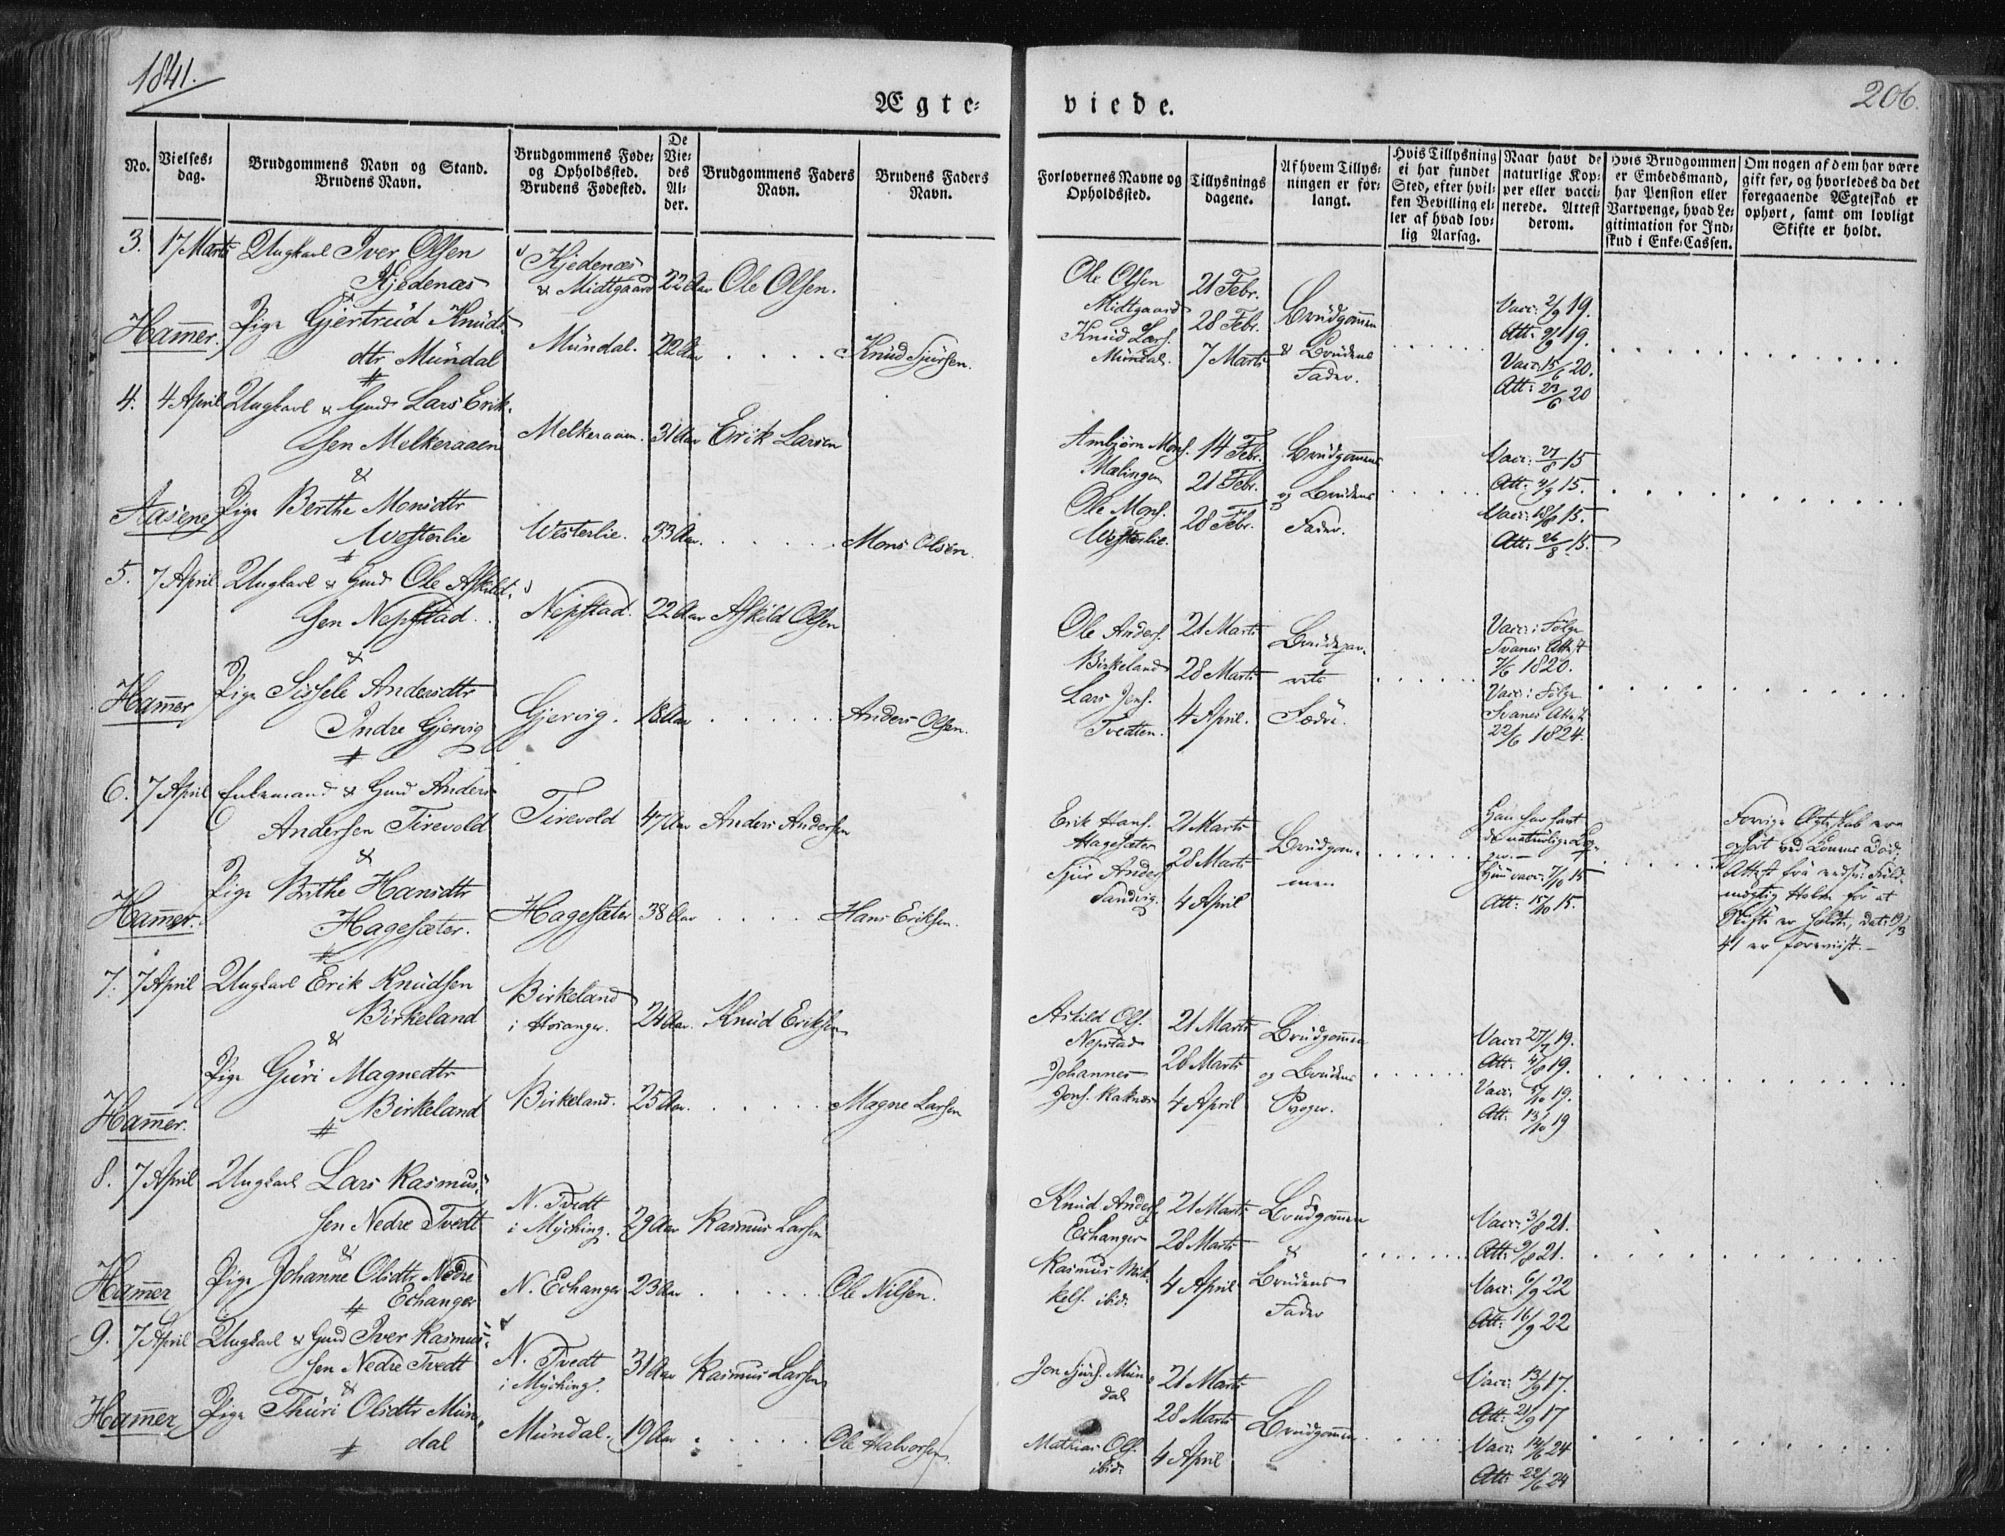 1841.
Ægte-
No.
Vielses-
dag.
Brudgommens Navn og Stand.
Brudens Navn.
Brudgommens Føde-
og Opholdssted.
Brudens Fødested.
De
Vie-
des
Al-
der.
Brudgommens Faders
Navn.
Brudens Faders
Navn.
3. 17 Marts Ungkarl Iver Olsen Kjedenæs 22 Aar Ole Olsen.
Kjedenæs & Midtgaard
&
Hamer. Pige Gjertrud Knuds- Mündal. 22 Aar Knud Sjursen.
dtr Mündal
#
4. 4 April Ungkarl & Gmd Lars Erik-
sen Melkeraaen Melkeraaen. 31 Aar Erik Larsen
&
Aasene Pige Berthe Monsdtr
Westerlie Westerlie. 33 Aar. Mons Olsen.
#
5. 7 April Ungkarl & Gmd Ole Askild-
sen Nepstad. Nepstad. 22 Aar Askild Olsen
&
Hamer Pige Sissele Andersdtr Gjervig. 18 Aar Anders Olsen.
Indre Gjervig
#
6. 7 April Enkemand & Gmd Anders
Andersen Tirevold Tirevold 47 Aar Anders Andersen
&
Pige Brithe Hansdtr
Hamer. Hagesæter. Hagesæter 38 Aar Hans Eriksen.
#
7. 7 April Ungkarl Erik Knudsen Birkeland
Birkeland i Hosanger. 24 Aar. Knud Eriksen
&
Pige Guri Magnedtr
Hamer. Birkeland Birkeland. 25 Aar. Magne Larsen
#
8. 7 April Ungkarl Lars Rasmus-
sen Nedre Tvedt N. Tvedt i Myching. 29 Aar Rasmus Larsen
&
Hamer Pige Johanne Olsdtr Nedre N. Echanger 23 Aar Ole Nilsen.
# Echanger
9. 7 April Ungkarl & Gmd Iver Rasmus-
sen Nedre Tvedt N. Tvedt i Myching. 31 Aar Rasmus Larsen
&
Hamer Pige Thuri Olsdtr Mün- Mündal. 19 Aar Ole Halvorsen
# dal
viede.
206.
Forlovernes Navne og
Opholdssted.
Tillysnings
dagene.
Af hvem Tillys-
ningen er for-
langt.
Hvis Tillysning
ei har fundet
Sted, efter hvil-
ken Bevilling el-
ler af hvad lov-
lig Aarsag.
Naar havt de
naturlige Kop-
per eller vacci-
nerede. Attest
derom.
Hvis Brudgommen
er Embedsmand,
har Pension eller
Vartpenge, hvad Le-
gitimation for Ind-
skud i Enke-Cassen.
Om nogen af dem har være
gift før, og hvorledes da det
foregaaende Ægteskab er
ophørt, samt om lovligt
Skifte er holdt.
Ole Olsen 21 Febr.
Midtgaard 28 Febr. Brudgommen Vacc: 2/9 19.
Knud Lars. Att: 9/9 19.
Mündal. 7 Marts & Brudens Vacc: 15/6 20.
Fader. Att: 23/6 20
Ambjørn Mons. 14 Febr. Brudgommens Vacc: 27/8 15
Mælingen 21 Febr. og Brudens Att: 4/9 15.
Ole Mons. 28 Febr. Fader. Vacc: 18/8 15.
Westerlie. Att: 26/8 15.
Ole Anders. 21 Marts Brudepar- Vacc: Følge
Birkeland 28 Marts rets Svanes Attest
Lars Jens. Fædre. 7/6 1820.
Tvedten. 4 April. Vacc: Følge
Svanes Attest
22/6 1824.
Erik Hans. 21 Marts Han har havt Forrige Ægteskab er
Hagesæter 28 Marts Brudgom- de naturlige Kop- ophørt ved Konens Død.
Sjur Anders. men per.
Sandvig. 4 April Hun vacc: 7/10 15 Attest fra
Att: 15/10 15. mægtig Holm for at
Skifte er holdt, dat: 19/3
41 er foreviist.
Askild Ols. 21 Marts Brudgommen Vacc: 27/7 19.
Nepstad 28 Marts og Brudens Att: 4/8 19.
Johannes Vacc: 5/10 19.
Jons. Raknes 4 April Svoger. Att: 13/10 19
Knud Anders. 21 Marts Brudgommen Vacc: 3/8 21.
Echanger 28 Marts & Att: 9/8 21.
Rasmus Mik- 4 April Brudens Vacc: 6/9 22
kels. ibid: Fader Att: 16/9 22
Jon Sjurs. Mün- 21 Marts Vacc: 13/9 17.
dal 28 Marts Brudgommen Att: 21/9 17
Mathias Ols. 4 April Vacc: 14/6 24
ibid: Att: 22/6 24